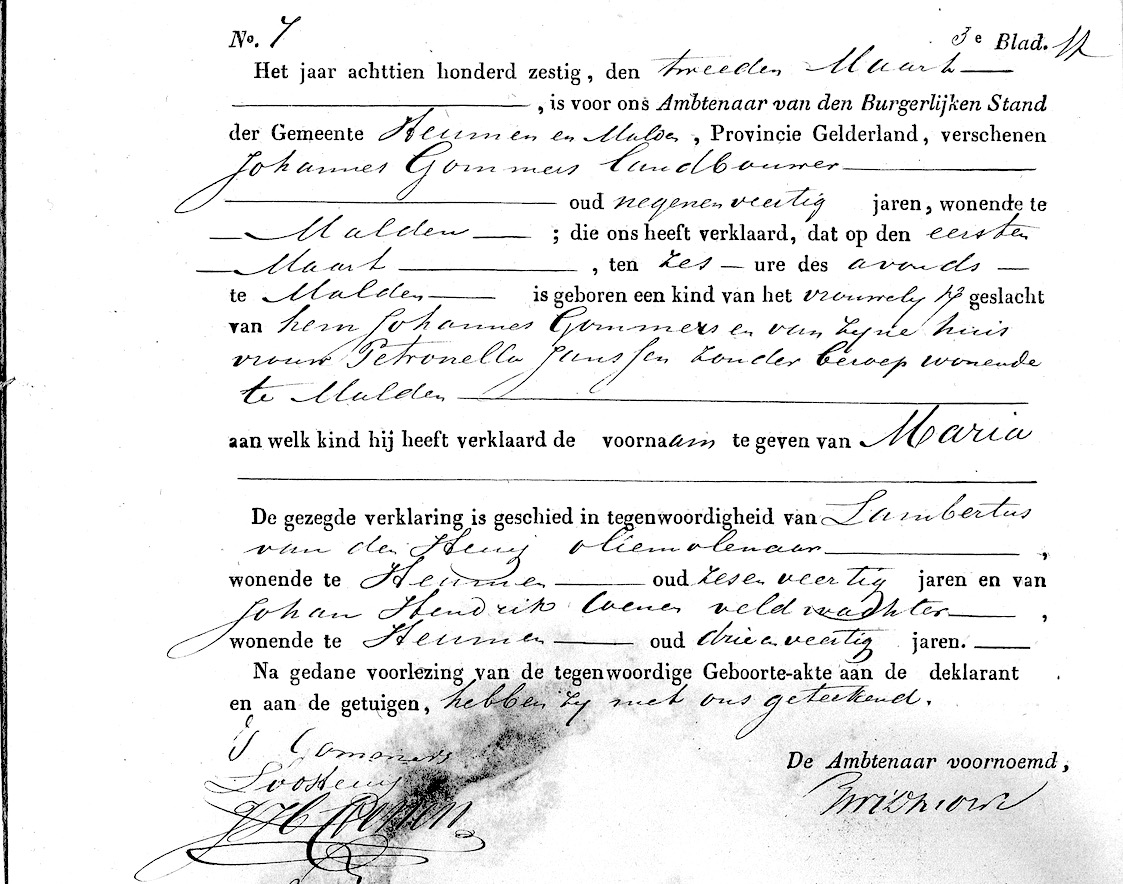 No. 7 3e Blad.
Het jaar achttien honderd zestig, den tweeden Maart
, is voor ons Ambtenaar van den Burgerlijken Stand
der Gemeente Heumen en Malden, Provincie Gelderland, verschenen
Johannes Gommers landbouwer
oud negenenveertig jaren, wonende te
Malden ; die ons heeft verklaard, dat op den eersten
Maart , ten zes ure des avonds
te Malden is geboren een kind van het vrouwelyk geslacht
van hem Johannes Gommers en van zyne huis
vrouw Petronella Janssen zonder beroep wonende
te Malden
aan welk kind hij heeft verklaard de voornaam te geven van Maria
De gezegde verklaring is geschied in tegenwoordigheid van Lambertus
van den oliemolenaar ,
wonende te Heumen oud zesenveertig jaren en van
Johan Hendrik Coenen veldwachter ,
wonende te Heumen oud drieenveertig jaren.
Na gedane voorlezing van de tegenwoordige Geboorte-akte aan de deklarant
en aan de getuigen, hebben zy met ons geteekend.
Gommers
De Ambtenaar voornoemd,
JH Coenen